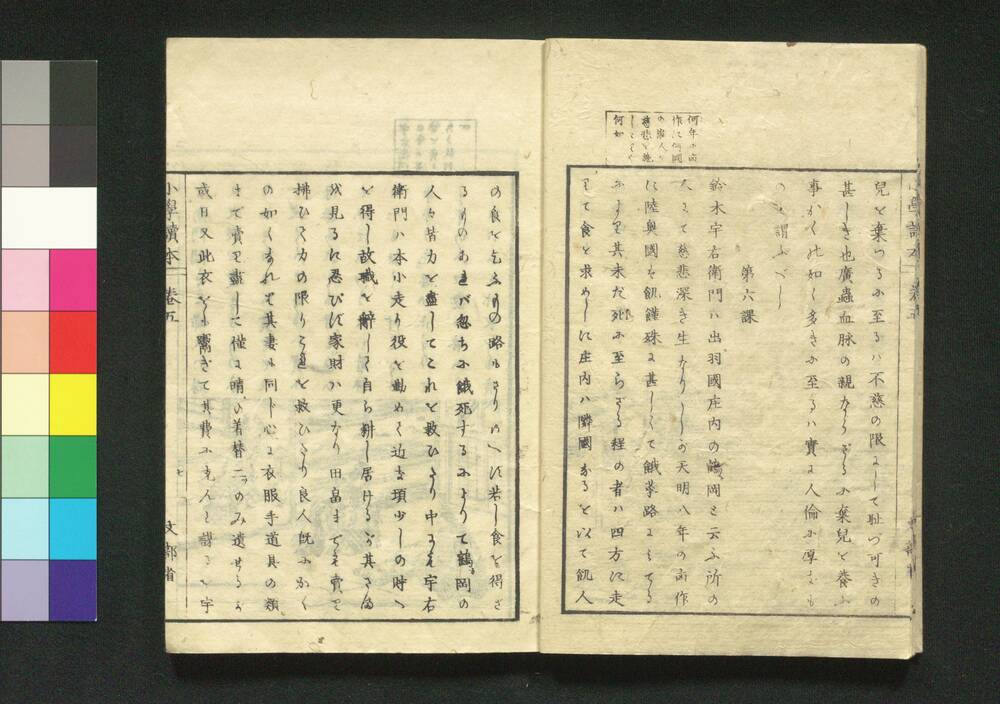 兒を棄つるに至るハ不慈の限にして耻づ可きの
甚しき也廣蟲血脉の親からざるに棄兒を養ふ
事かくの如く多きに至るハ實に人倫に厚き
の謂ふべし
第六課
鈴木宇右衛門ハ出羽國庄内の鶴岡と云ふ所の
人にて慈悲深き生なりしが天明八年の凶作
に陸奥國を飢饉殊に甚しくて餓莩路にみてる
により其未だ死に至らざる程の者ハ四方に走
りて食を求めしに庄内ハ隣國なるを以て飢人
何年の凶
作に何國
の飢人に
慈悲を施
何如
の食を乞ふもの路にさりあへず若し食を得ざ
るものあれバ忽ちに餓死するによりて鶴岡の
人々皆力を盡してこれを救ひたり中にも宇右
衛門ハ本小走り役を勤めて近き頃少しの時へ
を得し故職を辭して自ら耕し居けるが其さま
を見るに忍びず家財ハ更なり田畠までも賣を
拂ひて力の限り是を救ひたり良人既にかく
の如くなれば其妻も同じ心に衣服手道具の類
まで賣り盡して僅に晴の着替二ツのみ遺せるが
或日又此衣をも鬻ぎて其費に充んと謀るを宇
小學讀本 卷五
文部省